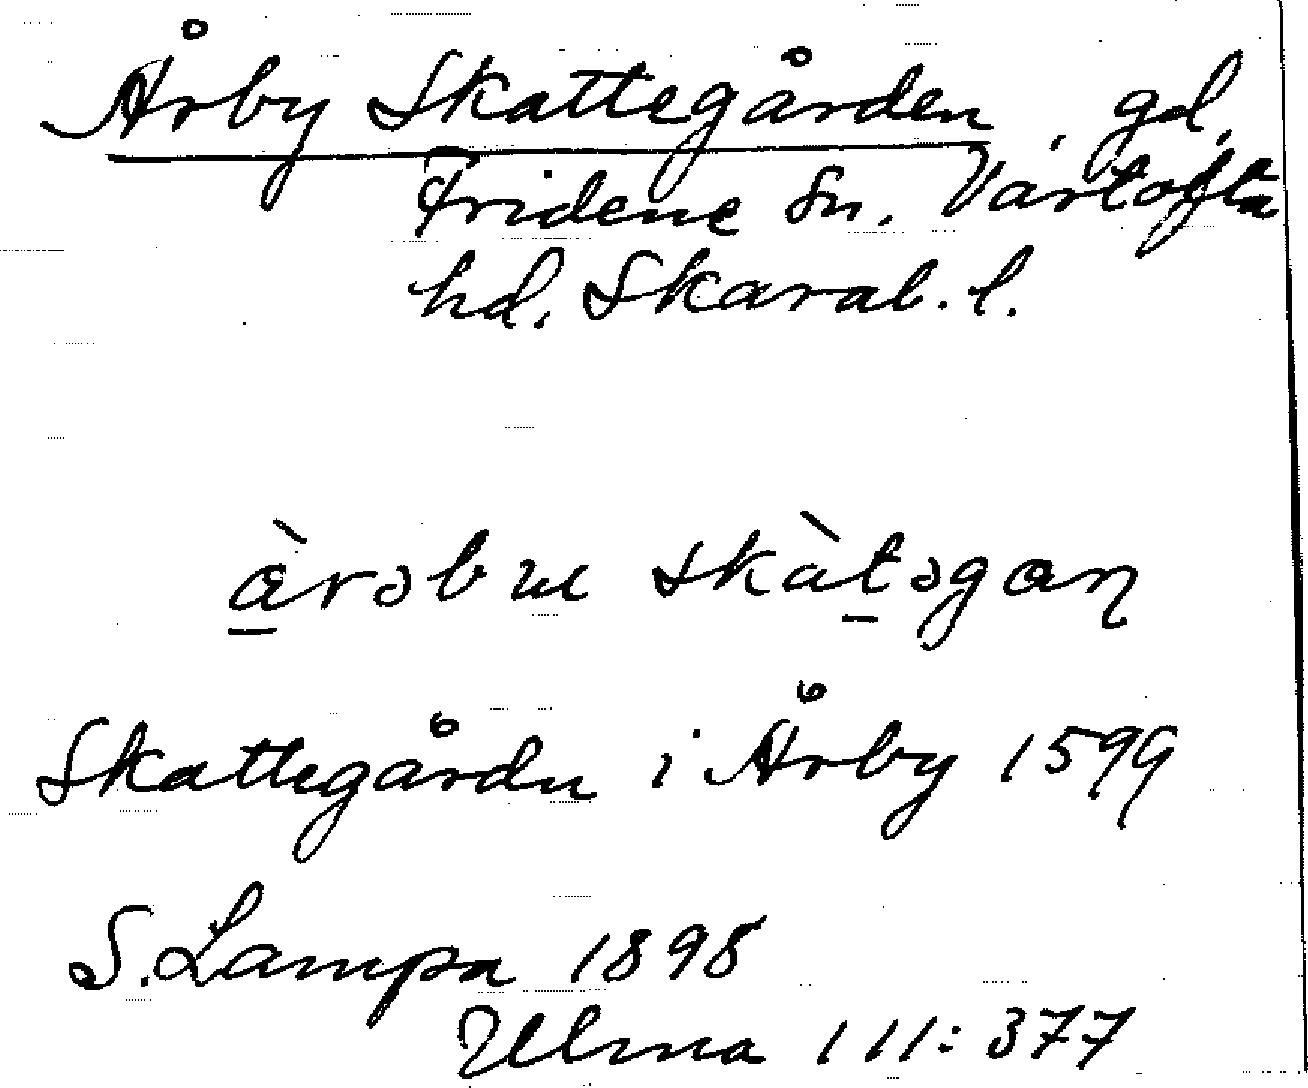 Årby Skattegården, gd,
Fridene Sn. Vartofta
hd. Skarab. l.
àrəbɯ skàtəgaṇ
Skattegården i Årby 1599
S. Lampa 1898
Ulma 111:377